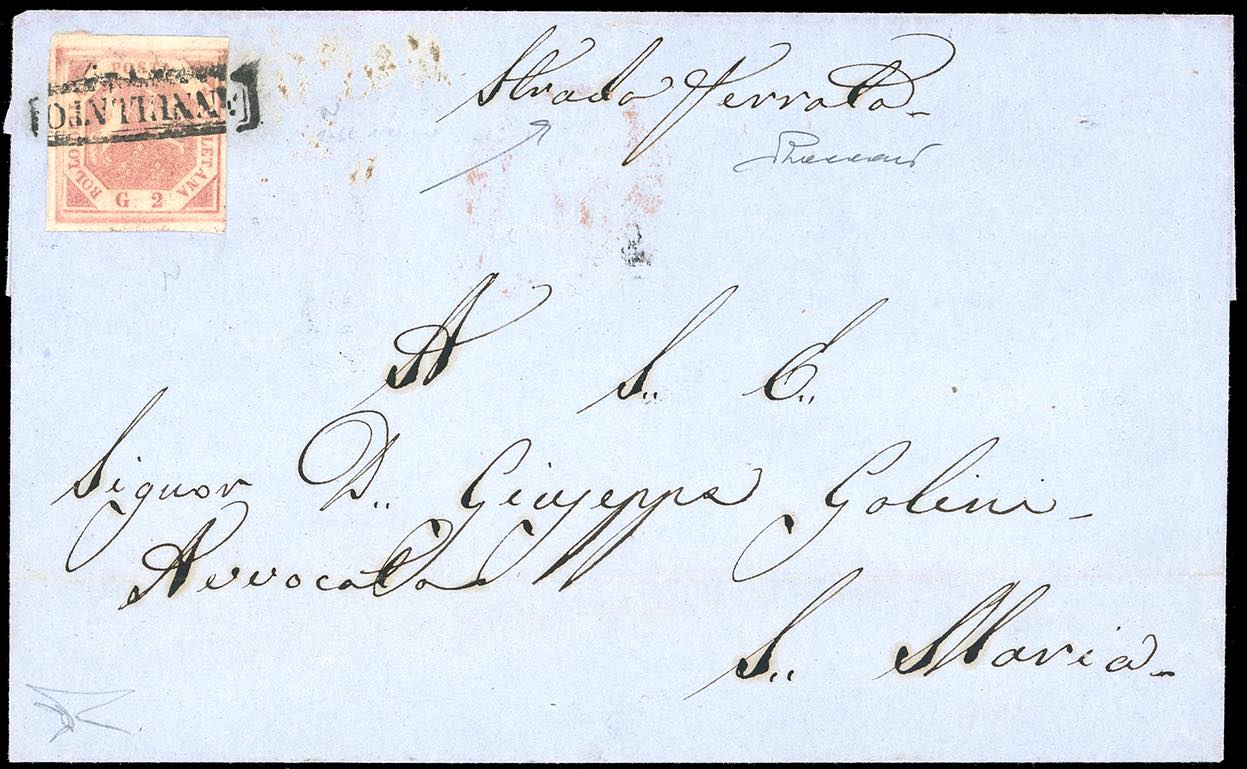 POSTA
ANNULLATO
BOLLO
LETANA
G 2
Strada Ferrata
A S. E.
Signor D. Giuseppe Golini
Avvocato
S. Maria